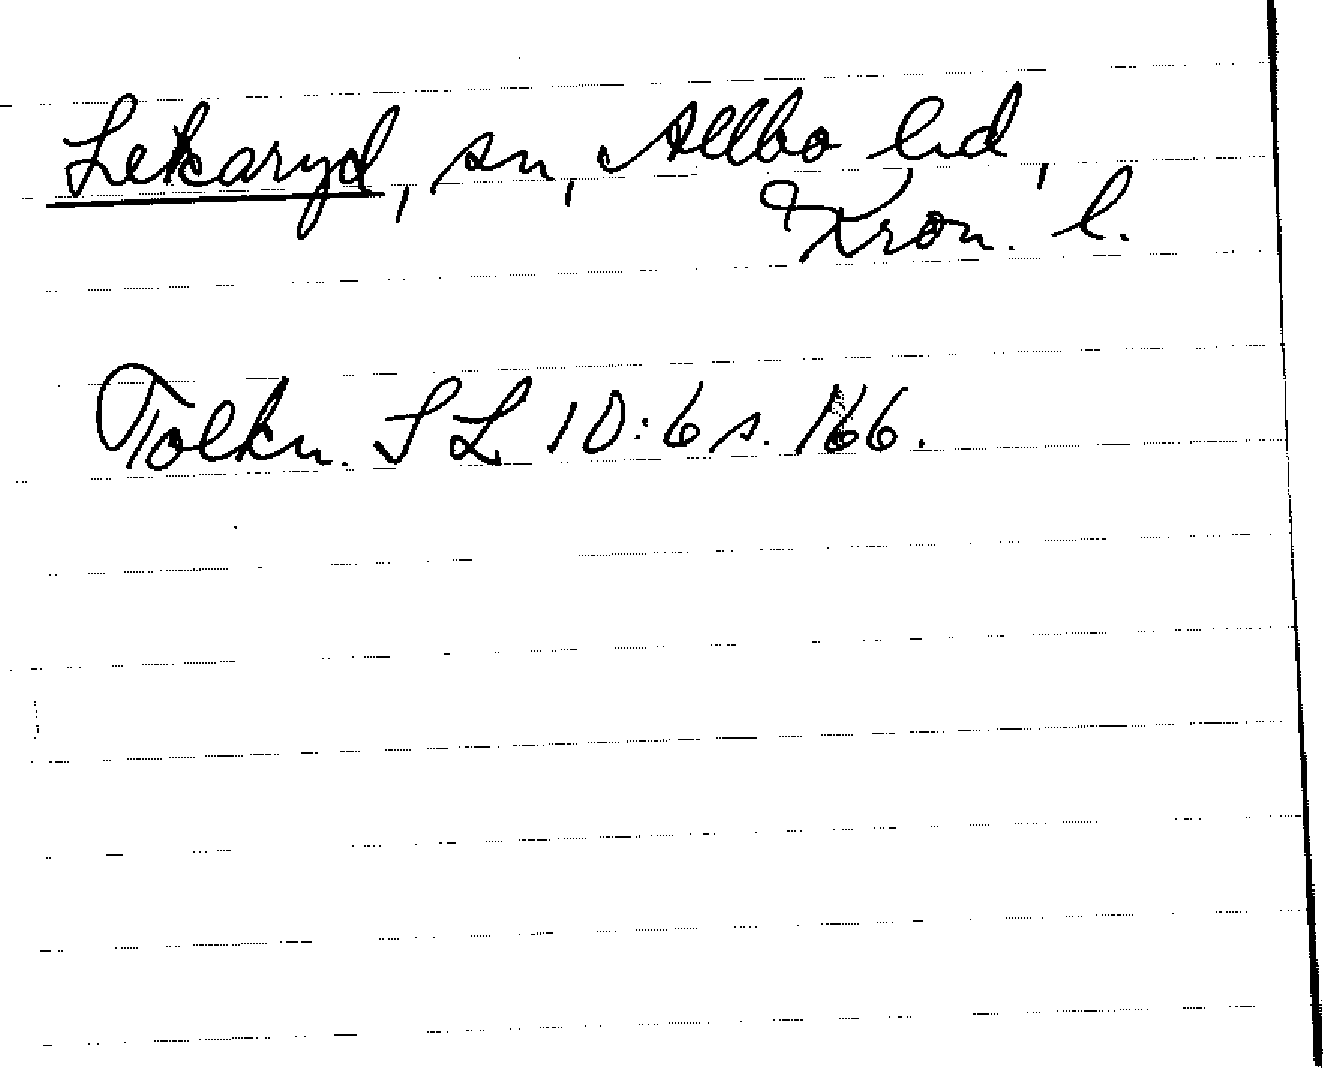 Lekaryd, sn, Allbo hd,
Kron. l.
Tolkn. SL 10:6 s. 166.